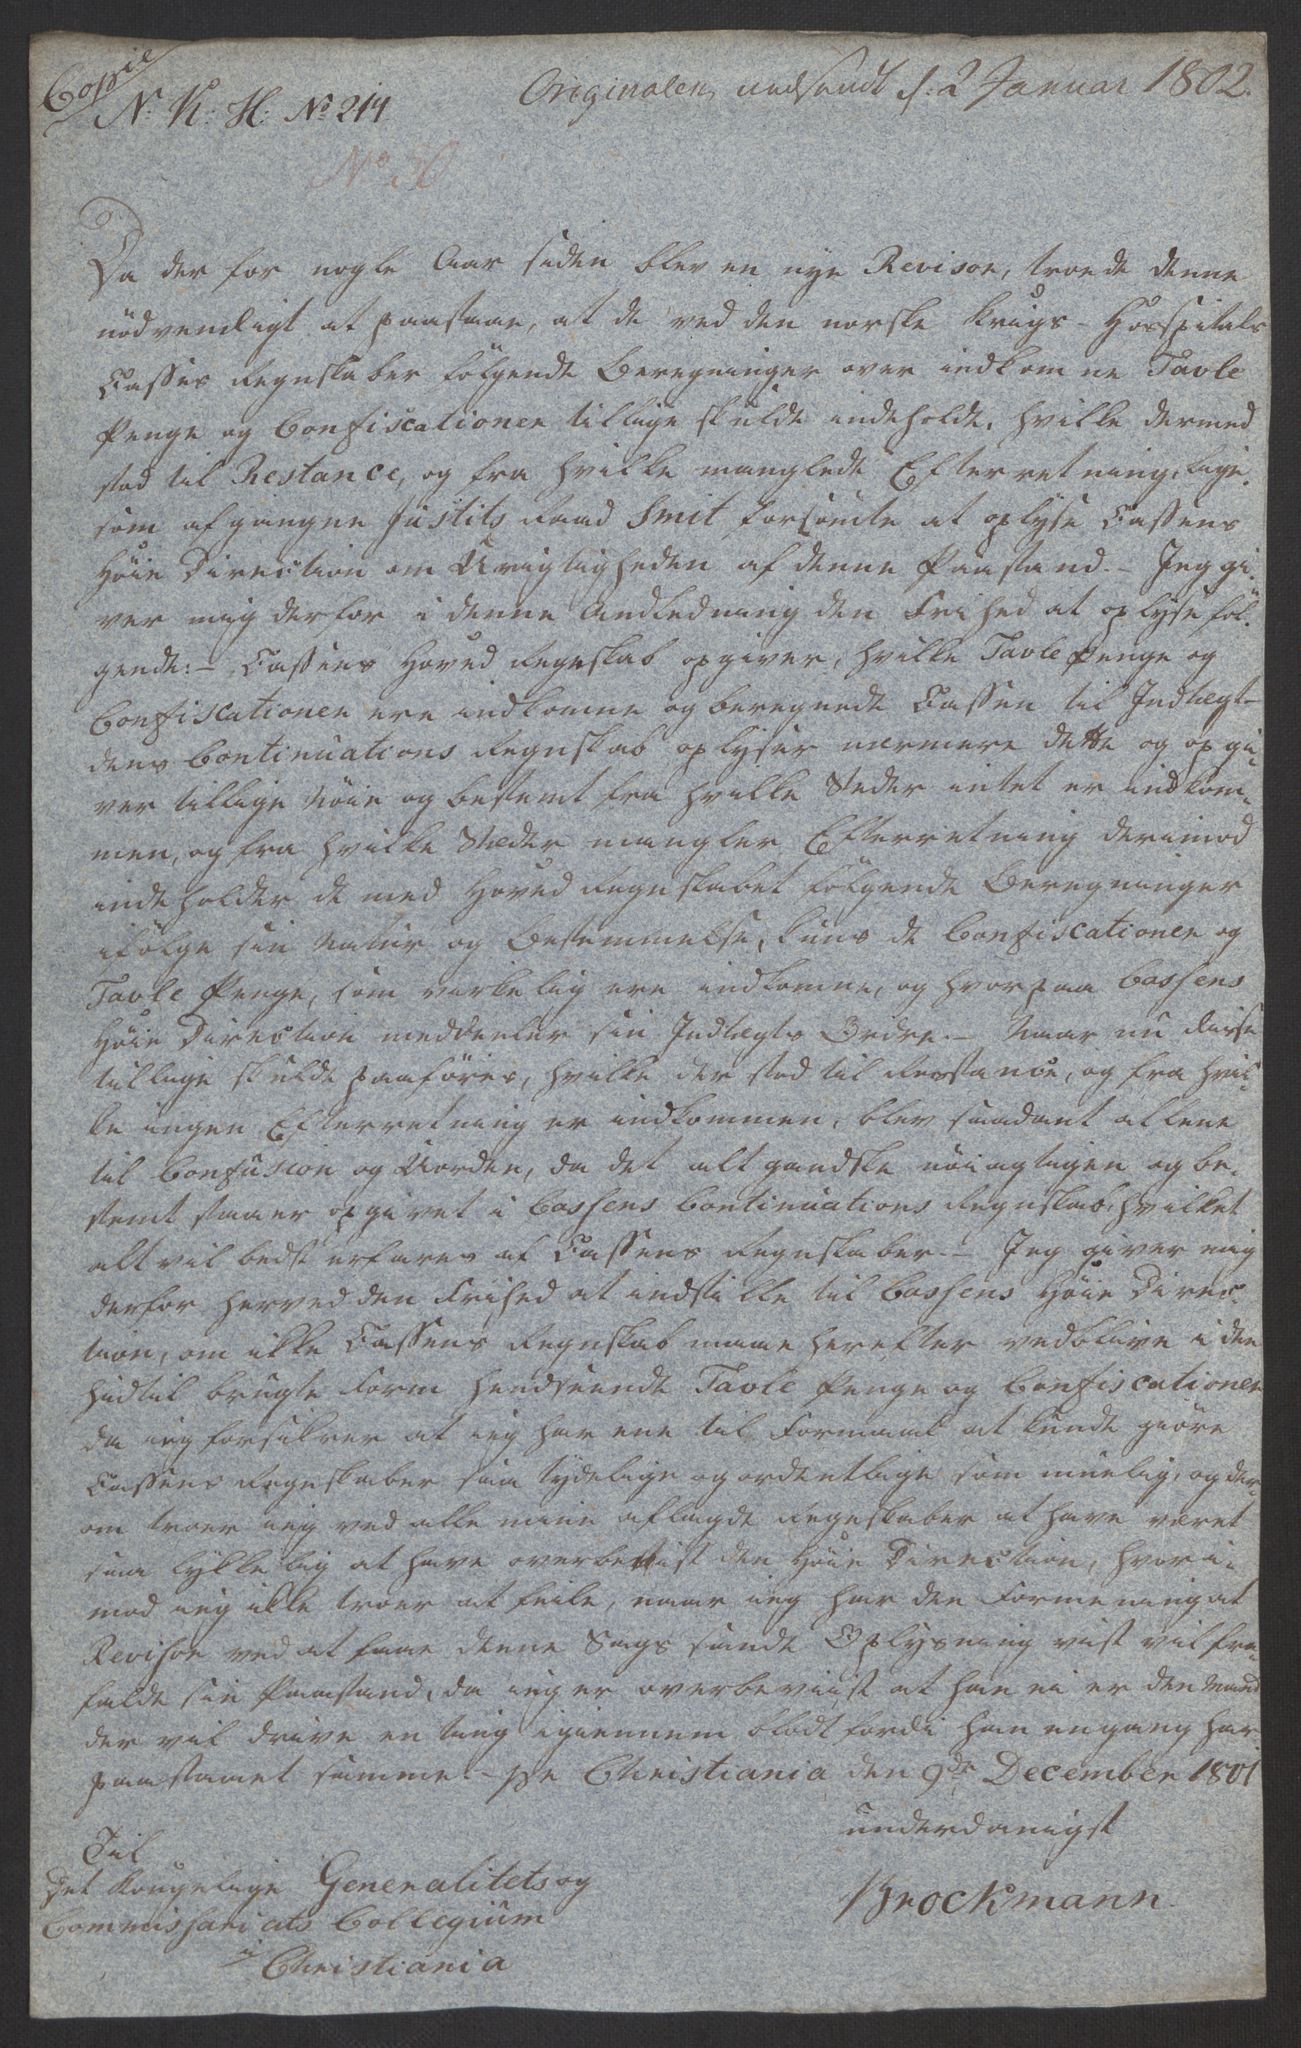 Copie
N: K: H: No 214
Originalen indsendt d: 2 Januar 1802.
No 50
Da der for nogle Aar siden blev en nye Revisor, troede denne
nödvendigt at paastaae, at de ved den norske Krigs-Hosspitals
Casses Regnskaber fölgende Beregninger over indkomne Tavle
Penge og Confiscationer tillige skulde indeholde, hvilke dermed
stod til Restance, og fra hvilke manglede Efterretning, lige-
som afgangne Justits Raad Smit forsömte at oplyse Cassens
Höie Direction om Urigtigheden af denne Paastand. - Jeg gi-
ver mig derfor i denne Anledning den Frihed at oplyse föl-
gende: - Cassens Hoved Regnskab opgiver, hvilke Tavle Penge og
Confiscationer ere indkomne og beregnede Cassen til Indtægt -
dens Continuations Regnskab oplyser nærmere dette og opgi-
ver tillige nöie og bestemt fra hvilke Steder intet er indkom-
men, og fra hvilke Stæder mangler Efterretning derimod
indeholder de med Hoved Regnskabet fölgende Beregninger
ifölge sin Natur og Bestemmelse, kuns de Confiscationer og
Tavle Penge, som virkelig ere indkomne, og hvorpaa Cassens
Höie Direction meddeeler sin Indtægts Ordre. - Naar nu disse
tillige skulde paaföres, hvilke der stod til Restance, og fra hvil-
ke ingen Efterretning er indkommen, blev saadant allene
til Confusion og Uorden, da det alt gandske nöiagtigen og be-
stemt staaer opgivet i Cassens Continuations Regnskab, hvilket
alt vil bedst erfares af Cassens Regnskaber. - Jeg giver mig
derfor herved den Frihed at indstille til Cassens Höie Direc-
tion, om ikke Cassens Regnskab maae herefter vedblive i den
hidtil brugte Form henseende Tavle Penge og Confiscationer
da ieg forsikrer at ieg har ene til Formaal at kunde giöre
Cassens Regnskaber saa tydelige og ordentlige som muelig, og der-
om troer ieg ved alle mine aflagde Regnskaber at have været
saa lykkelig at have overbeviist den Höie Direction, hvori-
mod ieg ikke troer at feile, naar ieg har den Formening at
Revisor ved at faae denne Sags sande Oplysning vist vil fra-
falde sin Paastand, da ieg er overbeviist at han ei er den Mand
der vil drive en ting igiennem blodt fordi han engang har
paastaaet samme. - Christiania den 9de December 1801
underdanigst
Brockmann
Til
Det Kongelige Generalitets og
Commissariats Collegium
i
Christiania